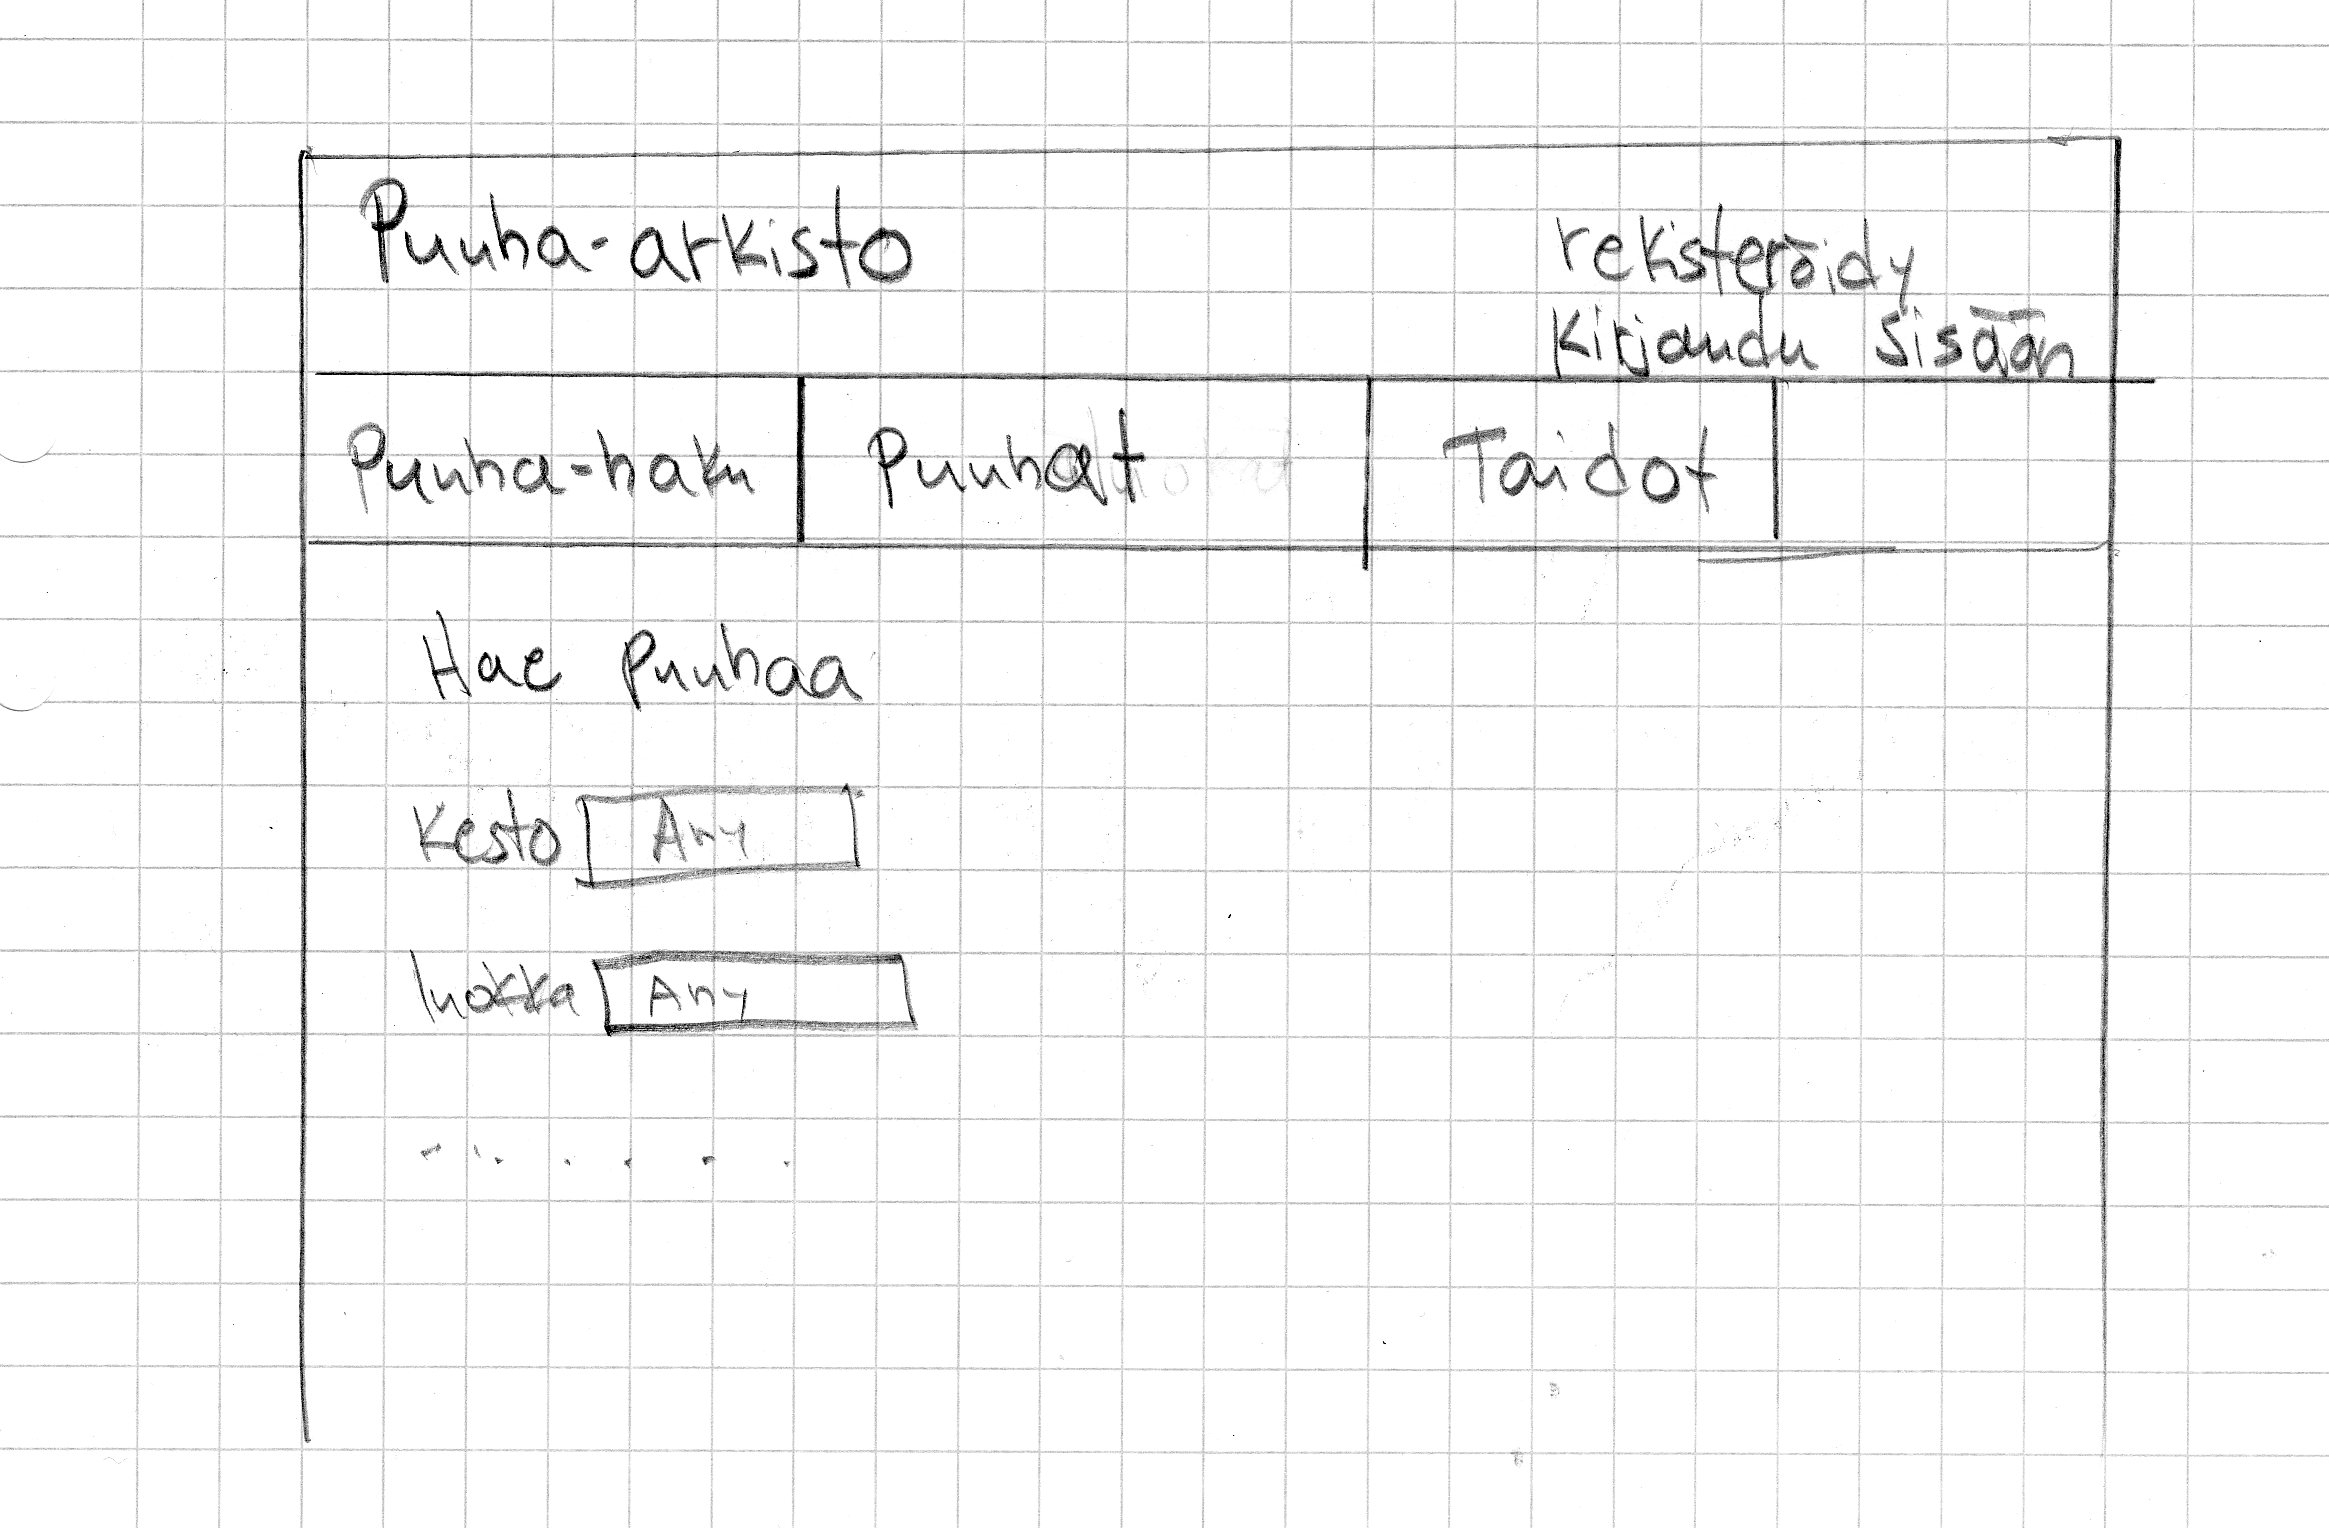 Puuha-arkisto
rekisteröidy
Kirjaudu sisään
Puuha-haku Puuhat Taidot
Hae puuhaa
Kesto Any
luokka Any
.......